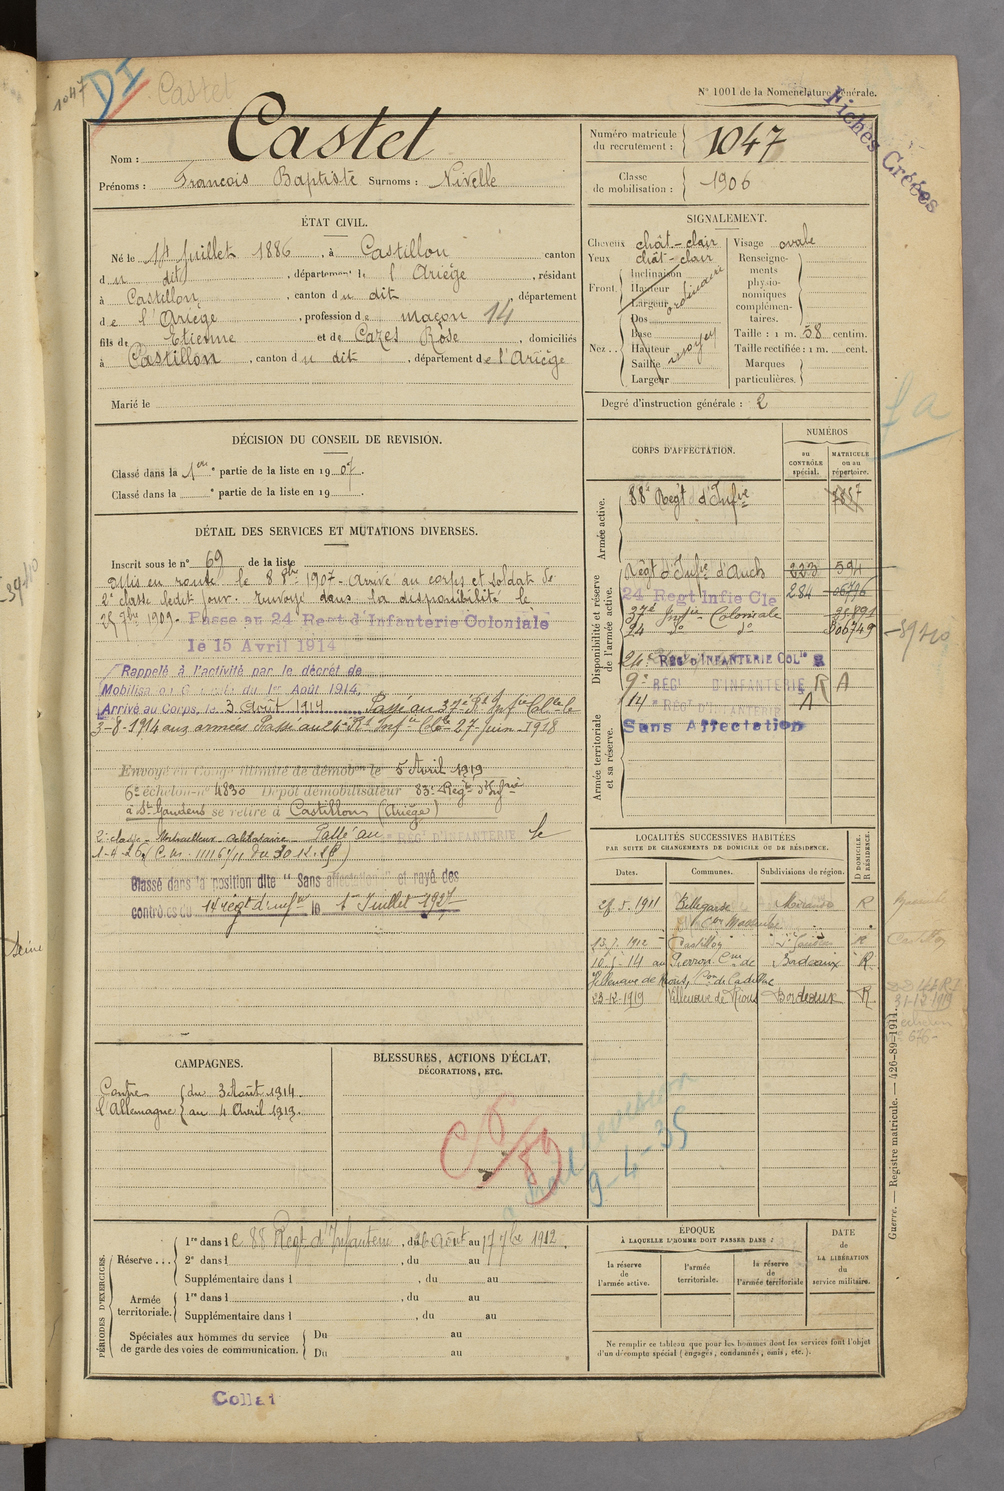 1047
DI
Castel
N° 1001 de la Nomenclature générale.
Fiches Créées
Nom : Castel
Prénoms : Francois Baptiste Surnoms : Nivelle
Numéro matricule du recrutement : 1047
Classe de mobilisation : 1906
ÉTAT CIVIL.
Né le 14 Juillet 1886, à Castillon canton
du dit, département de l'Ariège, résidant
à Castillon, canton du dit, département
de l'Ariège, profession de maçon 14
fils de Etienne et de Cazes Rose, domiciliés
à Castillon, canton du dit, département de l'Ariège
Marié le
SIGNALEMENT.
Cheveux chât-clair Visage ovale
Yeux chât-clair
Renseignements physionomiques complémentaires.
Front. Inclinaison
Hauteur ordinaire
Largeur
Nez.. Dos
Base
Hauteur
Saillie
Largeur
Taille : 1 m. 58 centim.
Taille rectifiée : 1 m. cent.
Marques particulières.
Degré d'instruction générale : 2
DÉCISION DU CONSEIL DE REVISION.
Classé dans la 1ère partie de la liste en 1907.
Classé dans la ° partie de la liste en 19 .
DÉTAIL DES SERVICES ET MUTATIONS DIVERSES.
Inscrit sous le n° 69 de la liste
Mis en route le 8 8bre 1907 - Arrivé au corps et Soldat de
2e classe ledit jour. Renvoyé dans la disponibilité le
25 7bre 1909. Passe au 24 Regt d'Infanterie Coloniale
le 15 Avril 1914
Rappelé à l'activité par le décret de
Mobilisation Générale du 1er Août 1914,
Arrivé au Corps, le 3 Août 1914 Passé au 37e Rt Infie Colle le
3-8-1914 aux armées Passé au 24e Rt Infie Colle 27 Juin 1918
Envoyé en Congé illimité de démobon le 5 Avril 1919
6e échelon n° 4830 Dépôt démobilisateur 83e Regt d'Infrie
à St Gaudens se retire à Castillon (Ariège)
Passé au RÉGT D'INFANTERIE le
Classé dans la position dite "Sans affectation" et rayé des
contrôles du 14 régt d'infie le 1er Juillet 1927
CORPS D'AFFECTATION.
NUMÉROS
au CONTRÔLE spécial.
MATRICULE ou au répertoire.
Armée active.
88e Regt d'Infie 7887
Disponibilité et réserve de l'armée active.
Regt d'Infie d'Auch 223 594
24 Regt Infie Cle 284 06796
37e Infie Coloniale
24 do do
24e RÉGT D'INFANTERIE COLle R
9e RÉGT D'INFANTERIE R A
14e RÉGT D'INFANTERIE A
Sans Affectation
Armée territoriale et sa réserve.
LOCALITÉS SUCCESSIVES HABITÉES
PAR SUITE DE CHANGEMENTS DE DOMICILE OU DE RÉSIDENCE.
Dates. Communes. Subdivisions de région. D DOMICILE. R RÉSIDENCE.
28.5.1911 Bellegarde Mirande R
Con Masseube
Castillon St Gaudens R
au Pierron Cne de Bordeaux R
Villenave de Rions, Con de Cadillac
23-12-1919 Villenave de Rions Bordeaux R
CAMPAGNES.
Contre l'Allemagne { du 3 Août 1914.
au 4 Avril 1919.
BLESSURES, ACTIONS D'ÉCLAT,
DÉCORATIONS, ETC.
9-4-35
PÉRIODES D'EXERCICES.
Réserve... 1re dans le 88 Regt d'Infanterie, du Août au 17 7bre 1912.
2e dans l , du au
Supplémentaire dans l , du au
Armée territoriale. 1re dans l , du au
Supplémentaire dans l , du au
Spéciales aux hommes du service de garde des voies de communication. Du au
Du au
ÉPOQUE
À LAQUELLE L'HOMME DOIT PASSER DANS :
la réserve de l'armée active.
l'armée territoriale.
la réserve de l'armée territoriale
DATE de LA LIBÉRATION du service militaire.
Ne remplir ce tableau que pour les hommes dont les services font l'objet
d'un décompte spécial (engagés, condamnés, omis, etc.).
Guerre. — Registre matricule. — 426-89-1911.
Collat